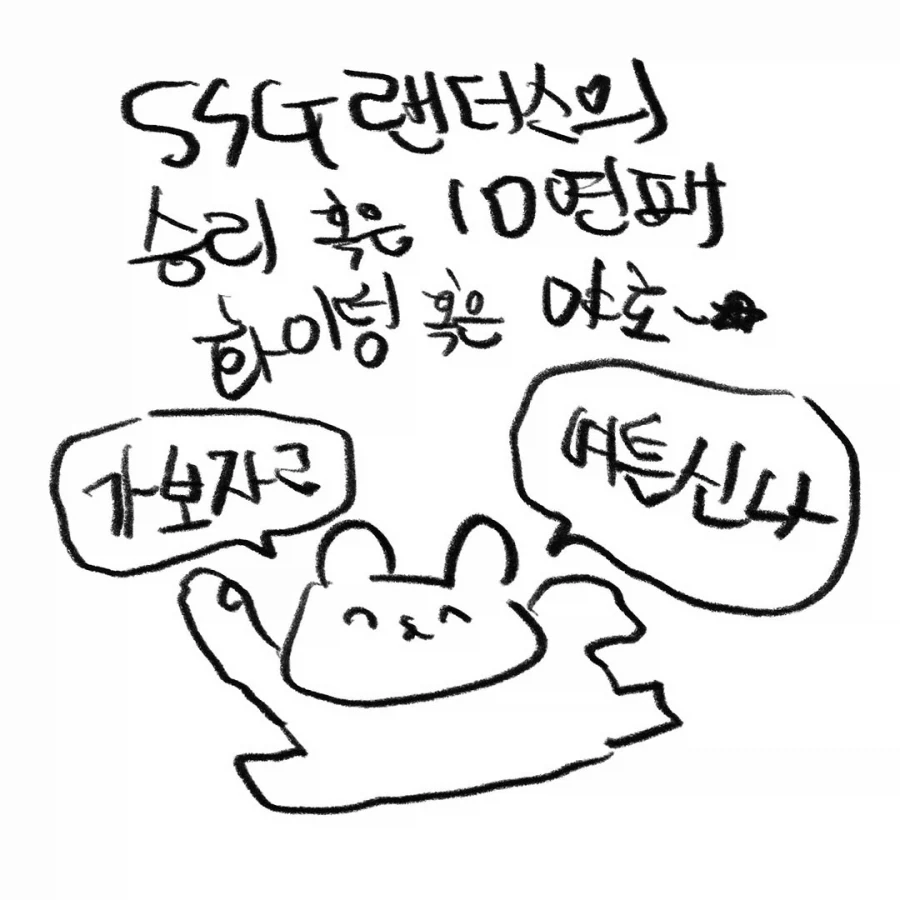 SSG랜더스의
승리 혹은 10연패
화이링 혹은 야호~★
가보자고
여튼신나